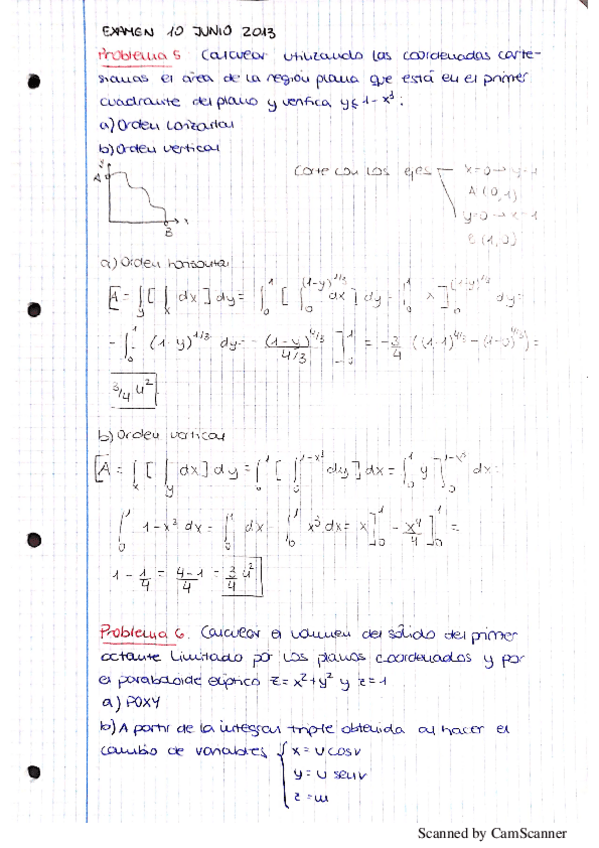 EXAMEN 10 JUNIO 2013
Problema 5 Calcular utilizando las coordenadas carte-
sianas el área de la región plana que está en el primer
cuadrante del plano y verifica y ≤ 1 - x³:
a) Orden horizontal
b) Orden vertical
Corte con los ejes x=0 → y=1
A (0,1)
y=0 → x=1
B (1,0)
y
A
x
B
a) Orden horizontal
A = ∫y [ ∫x dx ] dy = ∫₀¹ [ ∫₀^(1-y)^1/3 dx ] dy = ∫₀¹ x ]₀^(1-y)^1/3 dy =
= ∫₀¹ (1-y)^1/3 dy = - (1-y)^4/3 / 4/3 ]₀¹ = -3/4 ((1-1)^4/3 - (1-0)^4/3) =
3/4 u²
b) Orden vertical
A = ∫x [ ∫y dx ] dy = ∫₀¹ [ ∫₀^1-x³ dy ] dx = ∫₀¹ y ]₀^1-x³ dx =
∫₀¹ 1-x³ dx = ∫₀¹ dx - ∫₀¹ x³ dx = x ]₀¹ - x⁴/4 ]₀¹ =
1 - 1/4 = 4-1/4 = 3/4 u²
Problema 6. Calcular el volumen del sólido del primer
octante limitado por los planos coordenados y por
el paraboloide elíptico z = x² + y² y z = 1
a) POXY
b) A partir de la integral triple obtenida al hacer el
cambio de variables { x = u cosv
y = u senv
z = w
Scanned by CamScanner